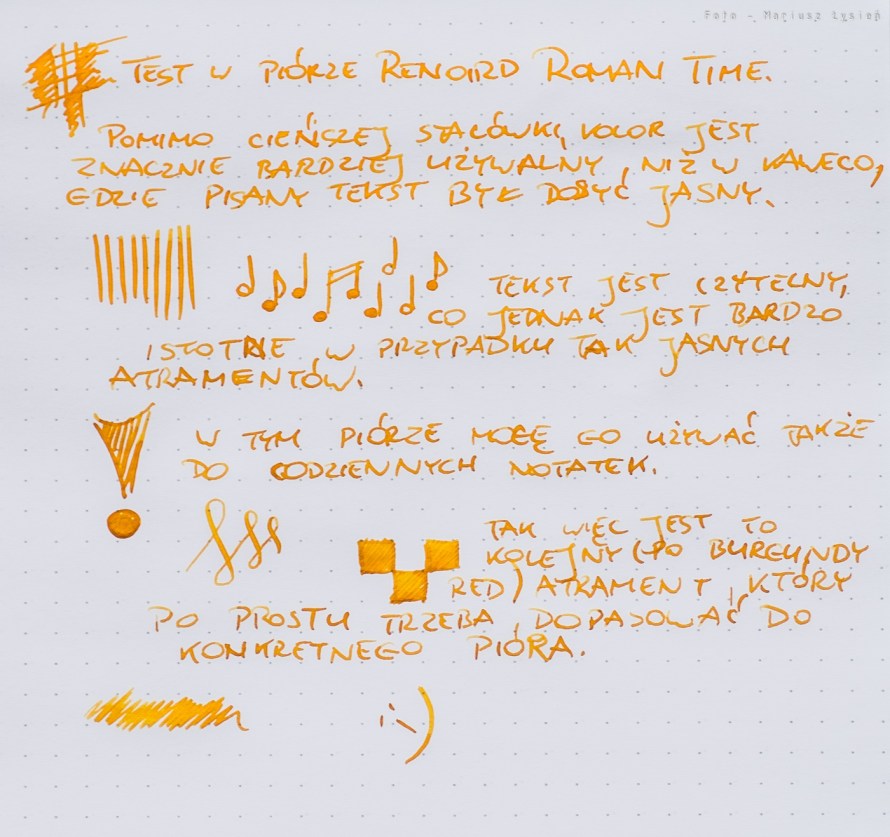 Foto - Mariusz Łysień
TEST W PIÓRZE RENOIRD ROMAN TIME.
POMIMO CIEŃSZEJ STALÓWKI, KOLOR JEST
ZNACZNIE BARDZIEJ UŻYWALNY, NIŻ W KAWECO,
GDZIE PISANY TEKST BYŁ DOSYĆ JASNY.
TEKST JEST CZYTELNY,
CO JEDNAK JEST BARDZO
ISTOTNE W PRZYPADKU TAK JASNYCH
ATRAMENTÓW.
W TYM PIÓRZE MOGĘ GO UŻYWAĆ TAKŻE
DO CODZIENNYCH NOTATEK.
TAK WIĘC JEST TO
KOLEJNY (PO BURGUNDY
RED) ATRAMENT, KTÓRY
PO PROSTU TRZEBA DOPASOWAĆ DO
KONKRETNEGO PIÓRA.
:-)